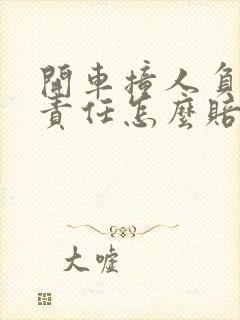 開車撞人負
責任怎麼賠
大嘘